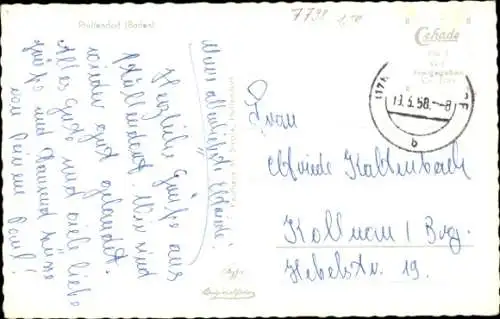 Pfullendorf (Baden)
7798
Cekade
Meine allerliebste Elfriede!
Herzliche Grüße aus
Pfullendorf. Wir sind
wieder gut gelandet.
Alles Gute und viele liebe
Grüße und tausend Küsse
von Deinem
Paul!
13.5.58.-8
b
Frau
Elfriede Kaltenbach
Kollnau / Brg.
Hebelstr. 19.